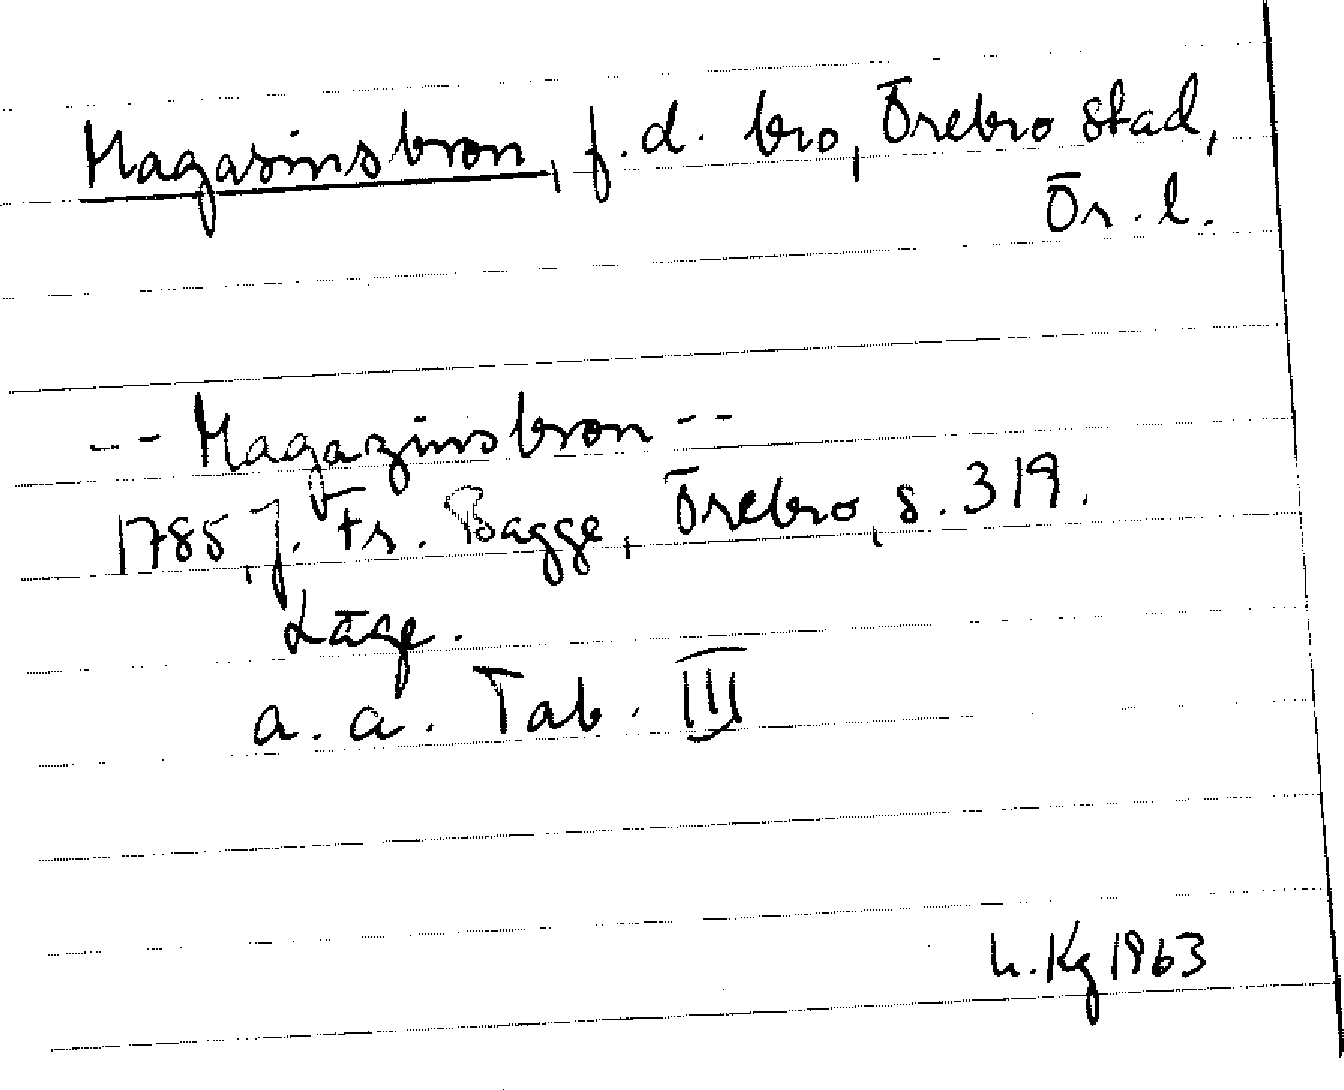 Magasinsbron, f.d. bro, Örebro stad,
Ör. l.
-- Magazinsbron --
1785, J. Fr. Bagge, Örebro, s. 319.
Läge.
a. a. Tab. III
h. Kg 1963